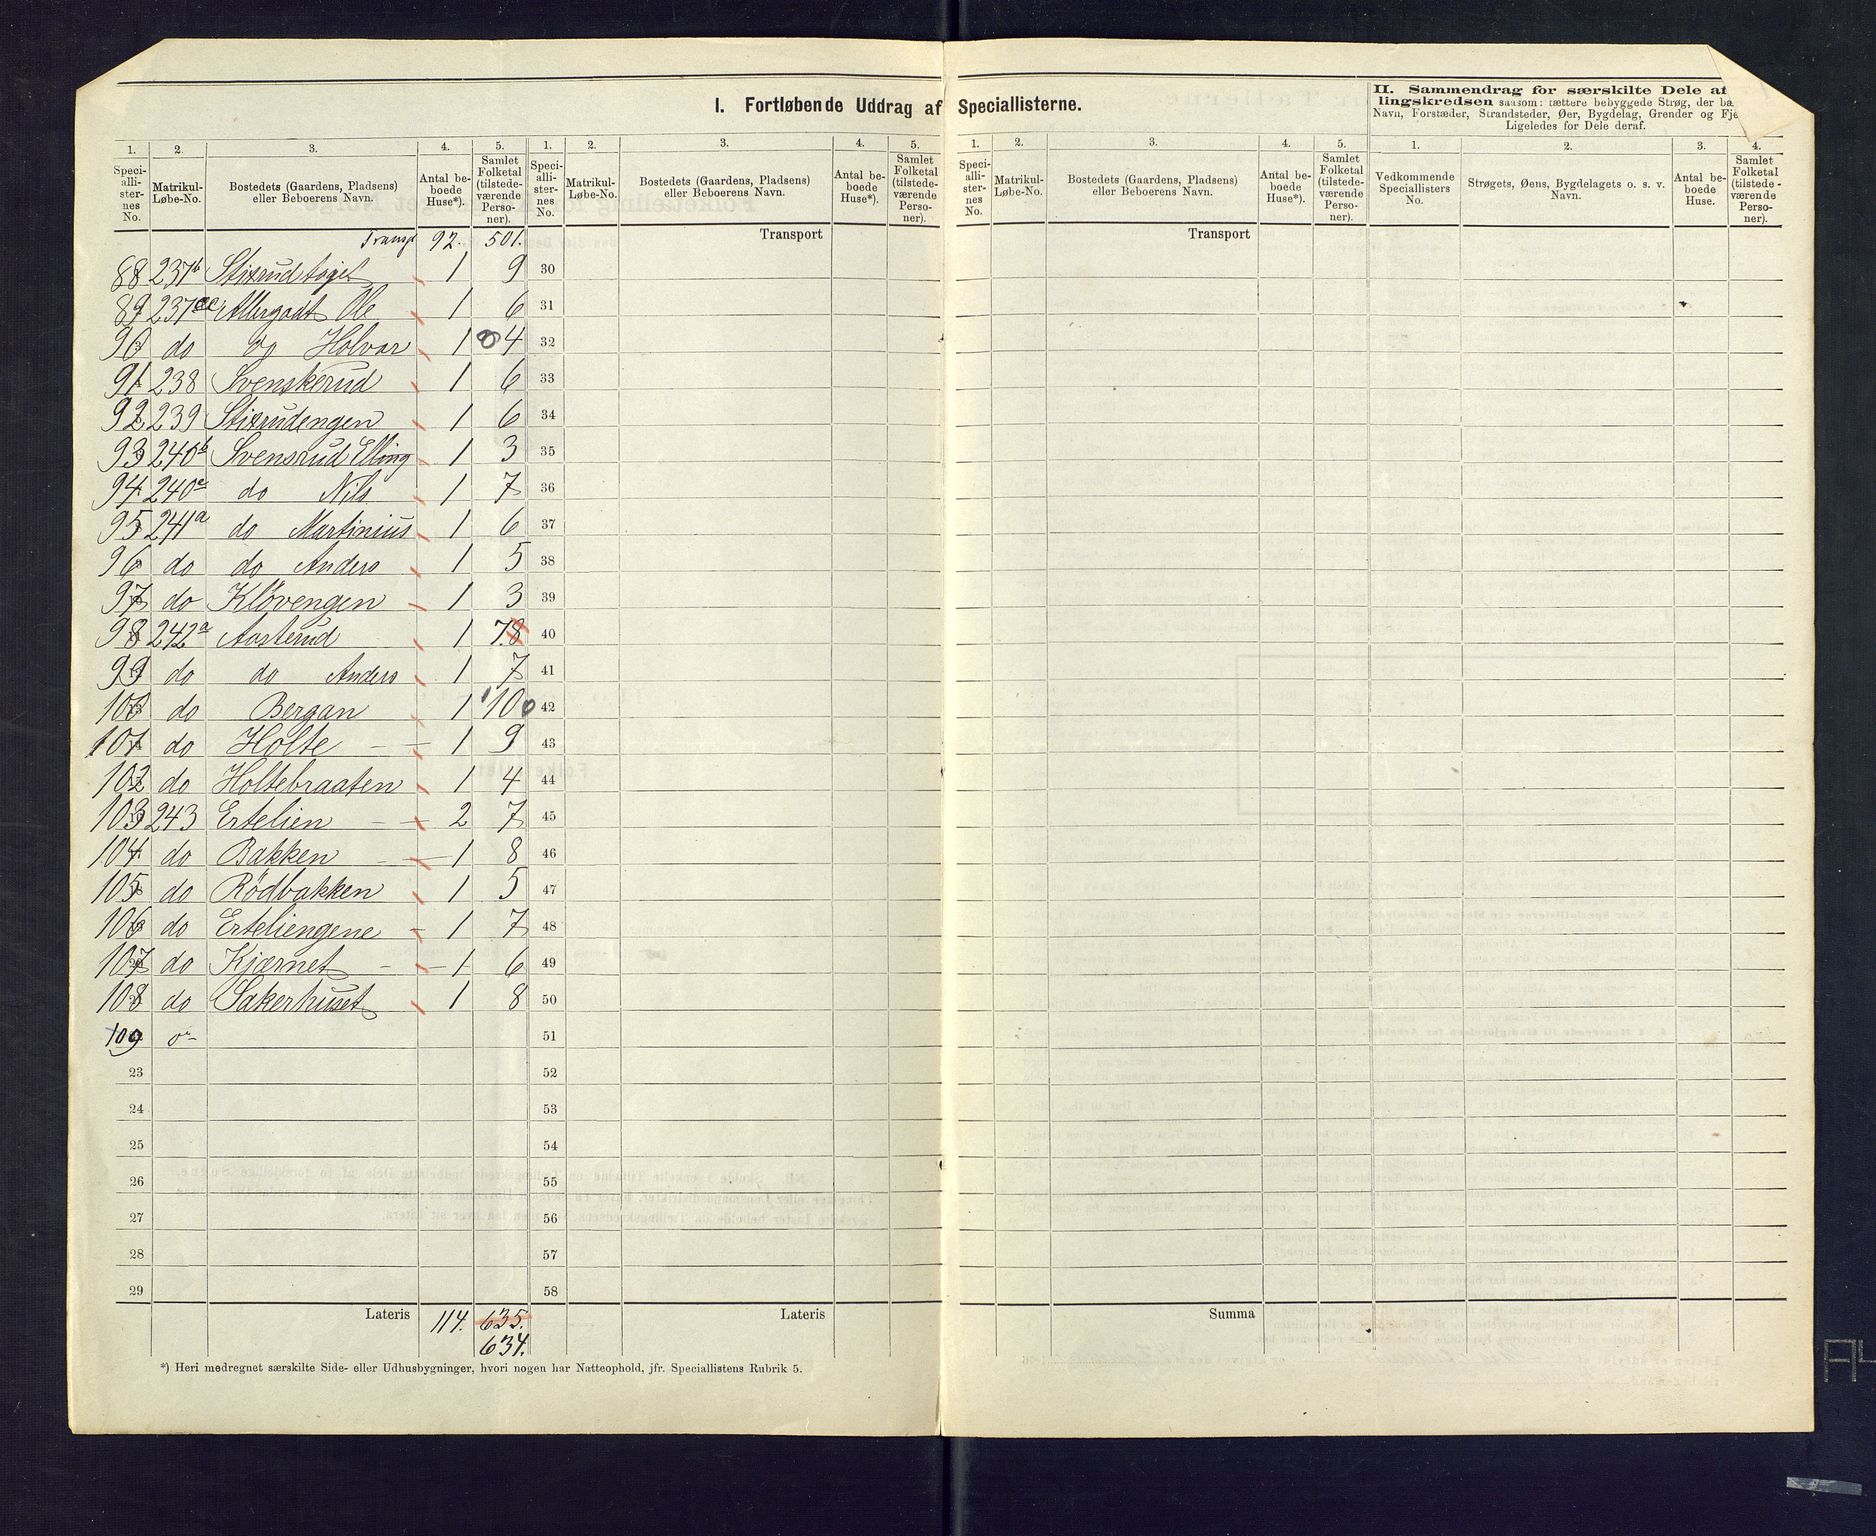 I. Fortløbende Uddrag af Speciallisterne.
II. Sammendrag for særskilte Dele af
lingskredsen saasom: tættere bebyggede Strøg, der bæ
Navn, Forstæder, Strandsteder, Øer, Bygdelag, Grender og Fje
Ligeledes for Dele deraf.
1. 2. 3. 4. 5. 1. 2. 3. 4. 5. 1. 2. 3. 4. 5. 1. 2. 3. 4.
Speciallisternes No. Matrikul-Løbe-No. Bostedets (Gaardens, Pladsens) eller Beboerens Navn. Antal beboede Huse*). Samlet Folketal (tilstedeværende Personer).
Speciallisternes No. Matrikul-Løbe-No. Bostedets (Gaardens, Pladsens) eller Beboerens Navn. Antal beboede Huse*). Samlet Folketal (tilstedeværende Personer).
Speciallisternes No. Matrikul-Løbe-No. Bostedets (Gaardens, Pladsens) eller Beboerens Navn. Antal beboede Huse*). Samlet Folketal (tilstedeværende Personer).
Vedkommende Speciallisters No. Strøgets, Øens, Bygdelagets o. s. v. Navn. Antal beboede Huse. Samlet Folketal (tilstedeværende Personer).
Transp 92. 501. Transport Transport
88 237b Stixrud 1 9 30
89 237 Allergodt Ole 1 6 31
90 do do Holvor 1 4 32
91 238 Svenskerud 1 6 33
92 239 Stixrudengen 1 6 34
93 240b Svensrud Elling 1 3 35
94 240c do Nils 1 7 36
95 241a do Martinius 1 6 37
96 do do Anders 1 5 38
97 do Kløvengen 1 3 39
98 242a Aasterud 1 7.8 40
99 do do Anders 1 7 41
100 do Bergan 1 10 42
101 do Holte 1 9 43
102 do Holtebraaten 1 4 44
103 243 Ertelien 2 7 45
104 do Bakken 1 8 46
105 do Rödbakken 1 5 47
106 do Erteliengene 1 7 48
107 do Kjærnet 1 6 49
108 do Sakerhuset 1 8 50
109 51
23 52
24 53
25 54
26 55
27 56
28 57
29 58
Lateris 114. 635. Lateris Summa
634.
*) Heri medregnet særskilte Side- eller Udhusbygninger, hvori nogen har Natteophold, jfr. Speciallistens Rubrik 5.